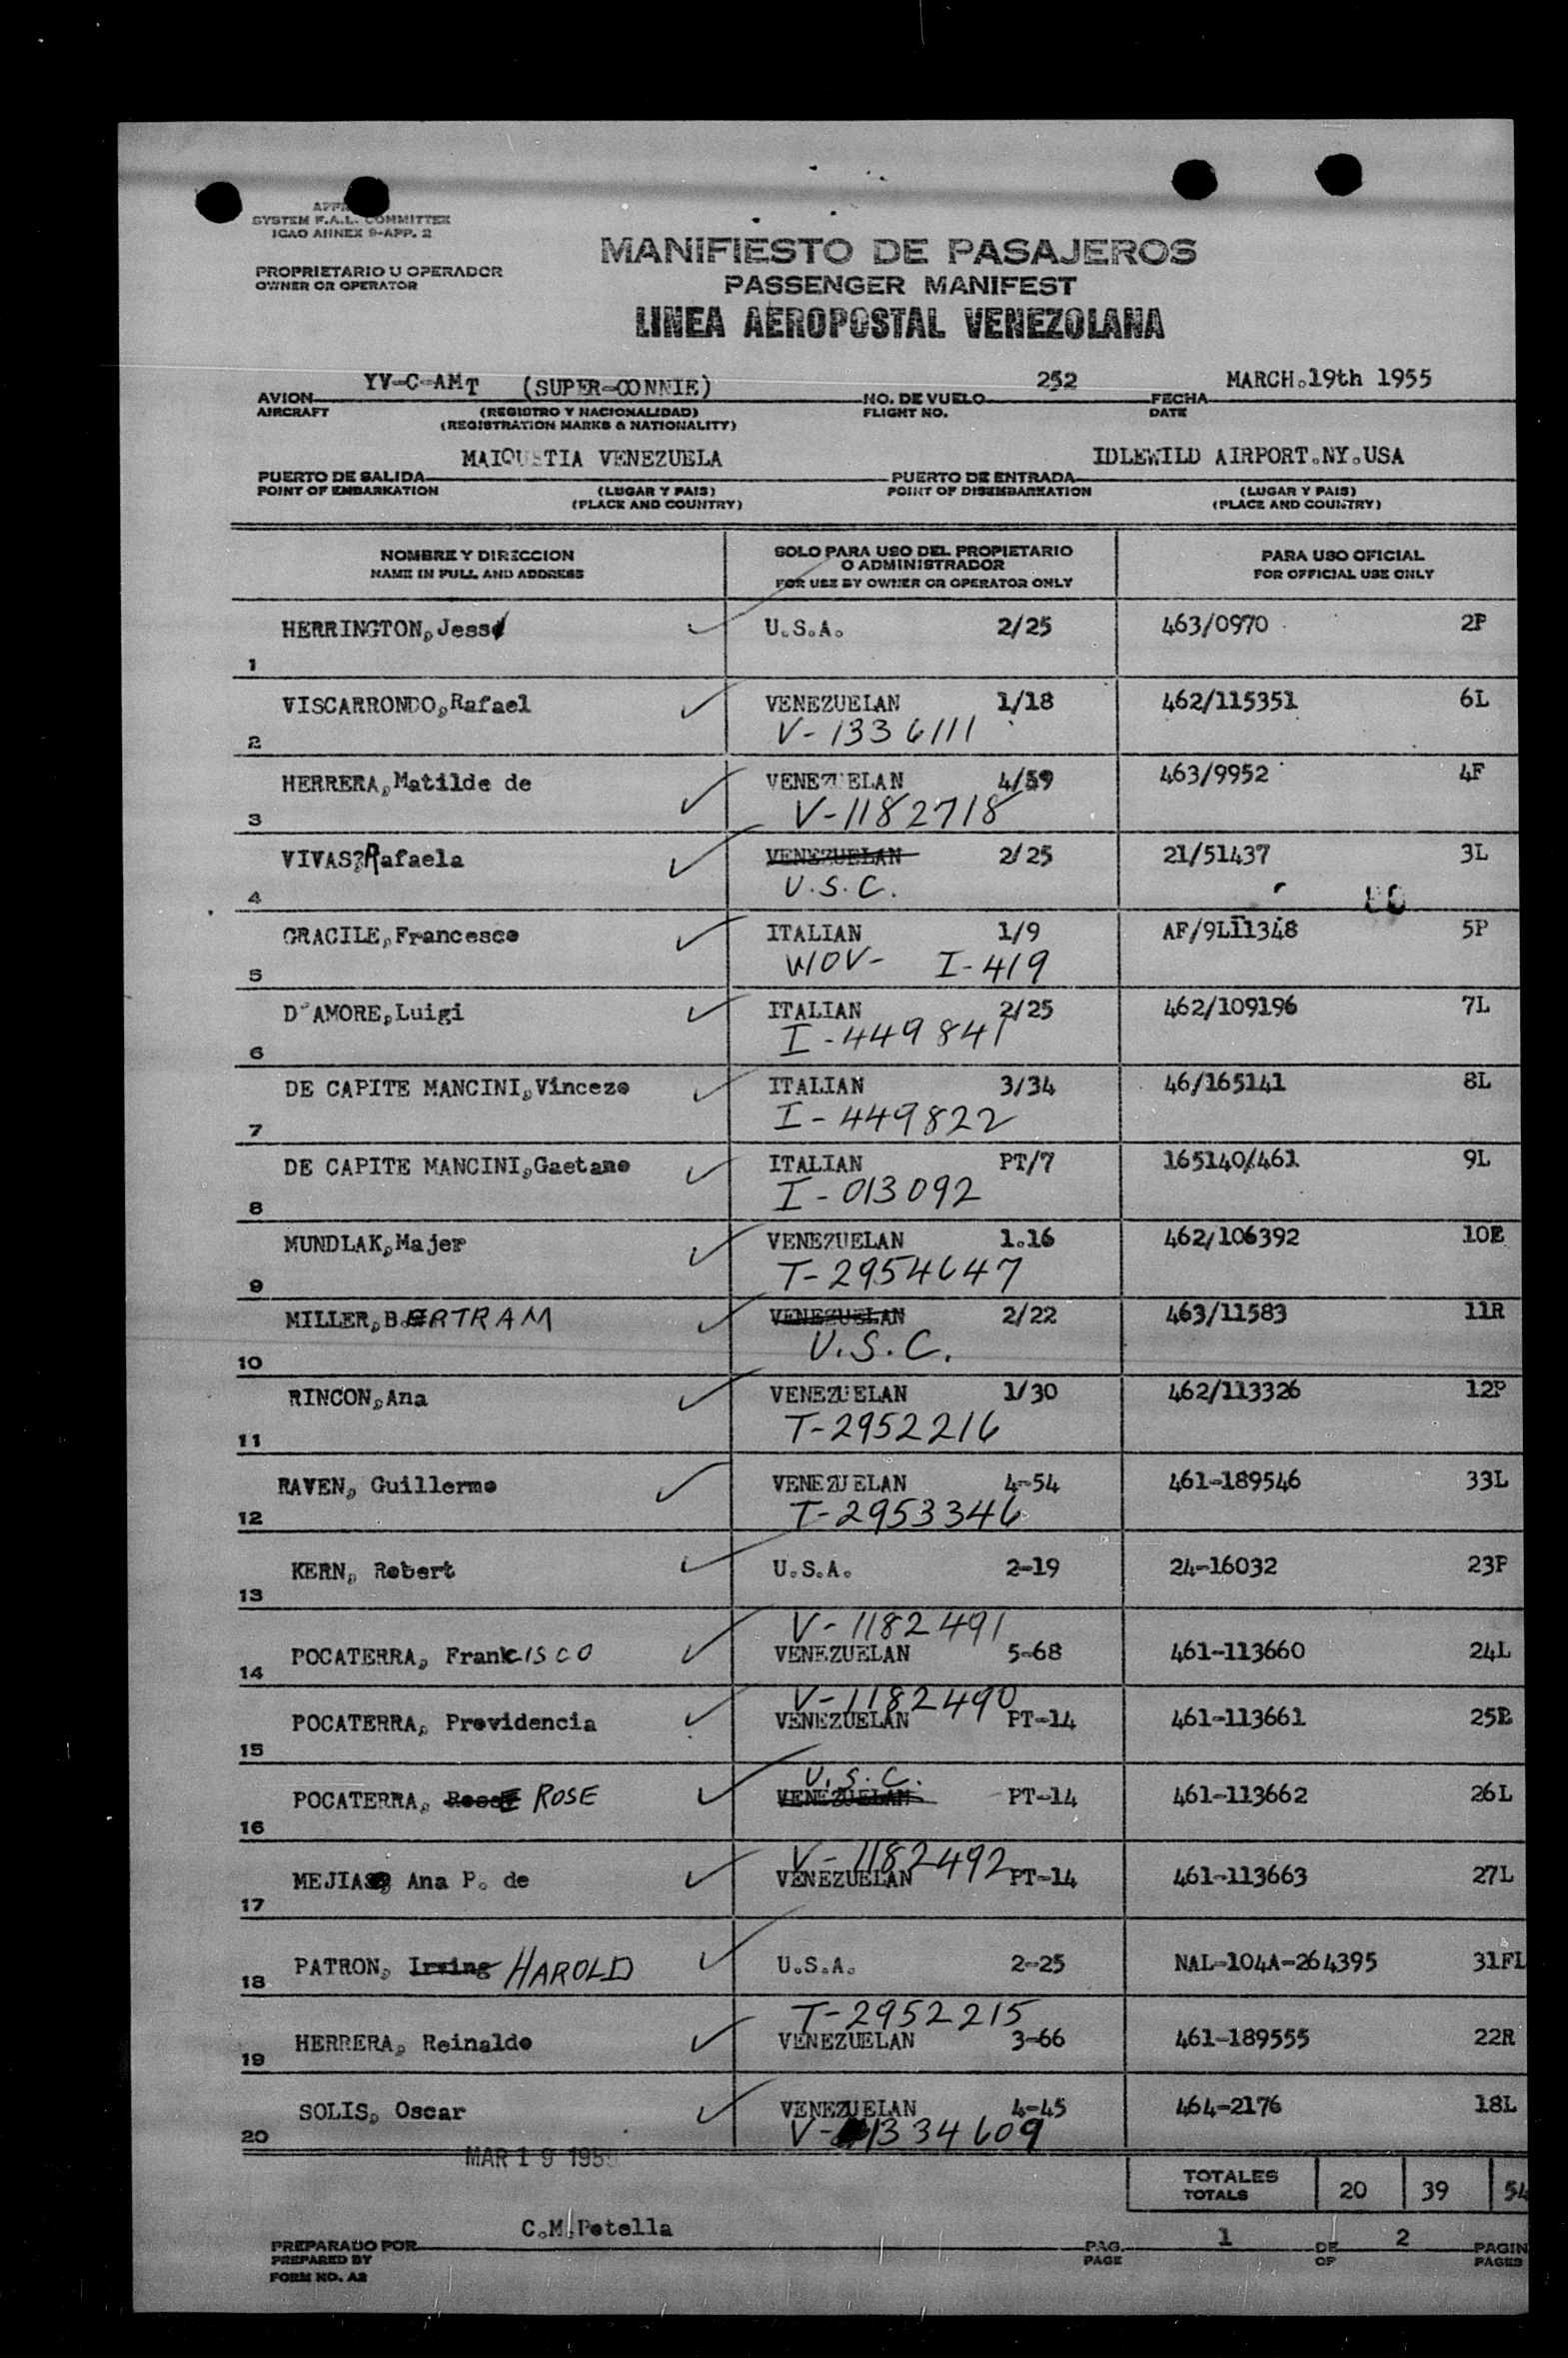 SYSTEM F.A.L. COMMITTEE
ICAO ANNEX 9-APP. 2
PROPRIETARIO U OPERADOR
OWNER OR OPERATOR
MANIFIESTO DE PASAJEROS
PASSENGER MANIFEST
LINEA AEROPOSTAL VENEZOLANA
AVION YV-C-AMT (SUPER-CONNIE) NO. DE VUELO 252 FECHA MARCH.19th 1955
AIRCRAFT (REGISTRO Y NACIONALIDAD) FLIGHT NO. DATE
(REGISTRATION MARKS & NATIONALITY)
PUERTO DE SALIDA MAIQUETIA VENEZUELA PUERTO DE ENTRADA IDLEWILD AIRPORT.NY.USA
POINT OF EMBARKATION (LUGAR Y PAIS) POINT OF DISEMBARKATION (LUGAR Y PAIS)
(PLACE AND COUNTRY) (PLACE AND COUNTRY)
NOMBRE Y DIRECCION SOLO PARA USO DEL PROPIETARIO PARA USO OFICIAL
O ADMINISTRADOR
NAME IN FULL AND ADDRESS FOR USE BY OWNER OR OPERATOR ONLY FOR OFFICIAL USE ONLY
HERRINGTON,Jess U.S.A. 2/25 463/0970 2P
1
VISCARRONDO,Rafael VENEZUELAN 1/18 462/115351 6L
2 V-1336111
HERRERA,Matilde de VENEZUELAN 4/59 463/9952 4F
3 V-1182718
VIVAS?Rafaela VENEZUELAN 2/25 21/51437 3L
4 U.S.C.
GRACILE,Francesco ITALIAN 1/9 AF/9L11348 5P
5 WOV- I-419
D'AMORE,Luigi ITALIAN 2/25 462/109196 7L
6 I-449841
DE CAPITE MANCINI,Vincezo ITALIAN 3/34 46/165141 8L
7 I-449822
DE CAPITE MANCINI,Gaetano ITALIAN PT/7 165140/461 9L
8 I-013092
MUNDLAK,Majer VENEZUELAN 1.16 462/106392 10E
9 T-2954647
MILLER,BERTRAM VENEZUELAN 2/22 463/11583 11R
10 U.S.C.
RINCON,Ana VENEZUELAN 1/30 462/113326 12P
11 T-2952216
RAVEN, Guillermo VENEZUELAN 4-54 461-189546 33L
12 T-2953346
KERN, Robert U.S.A. 2-19 24-16032 23P
13
V-1182491
14 POCATERRA, FrankCISCO VENEZUELAN 5-68 461-113660 24L
V-1182490
POCATERRA, Providencia VENEZUELAN PT-14 461-113661 25E
15
U.S.C.
POCATERRA, ROSE VENEZUELAN PT-14 461-113662 26L
16
V-1182492
MEJIAS Ana P. de VENEZUELAN PT-14 461-113663 27L
17
18 PATRON, Irving HAROLD U.S.A. 2-25 NAL-104A-264395 31FL
T-2952215
19 HERRERA, Reinaldo VENEZUELAN 3-66 461-189555 22R
SOLIS, Oscar VENEZUELAN 4-45 464-2176 18L
20 V-1334609
MAR 19 195
TOTALES
TOTALS 20 39 54
PREPARADO POR C.M.Petella PAG. 1 DE 2 PAGIN
PREPARED BY PAGE OF PAGES
FORM NO. A2